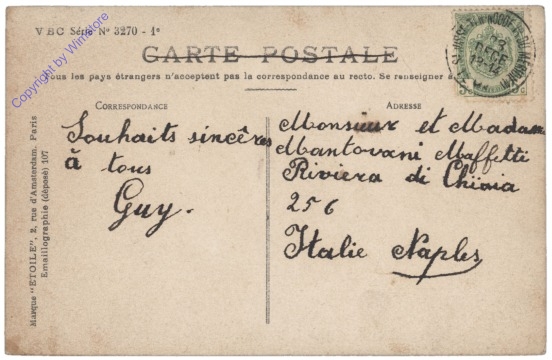 VBC Série Nº 3270 - 1º
CARTE POSTALE
Tous les pays étrangers n'acceptent pas la correspondance au recto. Se renseigner à
CORRESPONDANCE
Souhaits sincères
à tous
Guy.
ADRESSE
Monsieur et Madame
Mantovani Maffetti
Riviera di Chiaia
256
Italie Naples
Marque "ETOILE", 2, rue d'Amsterdam, Paris
Emaillographie (déposé) 107
DECE
Copyright by WimStore